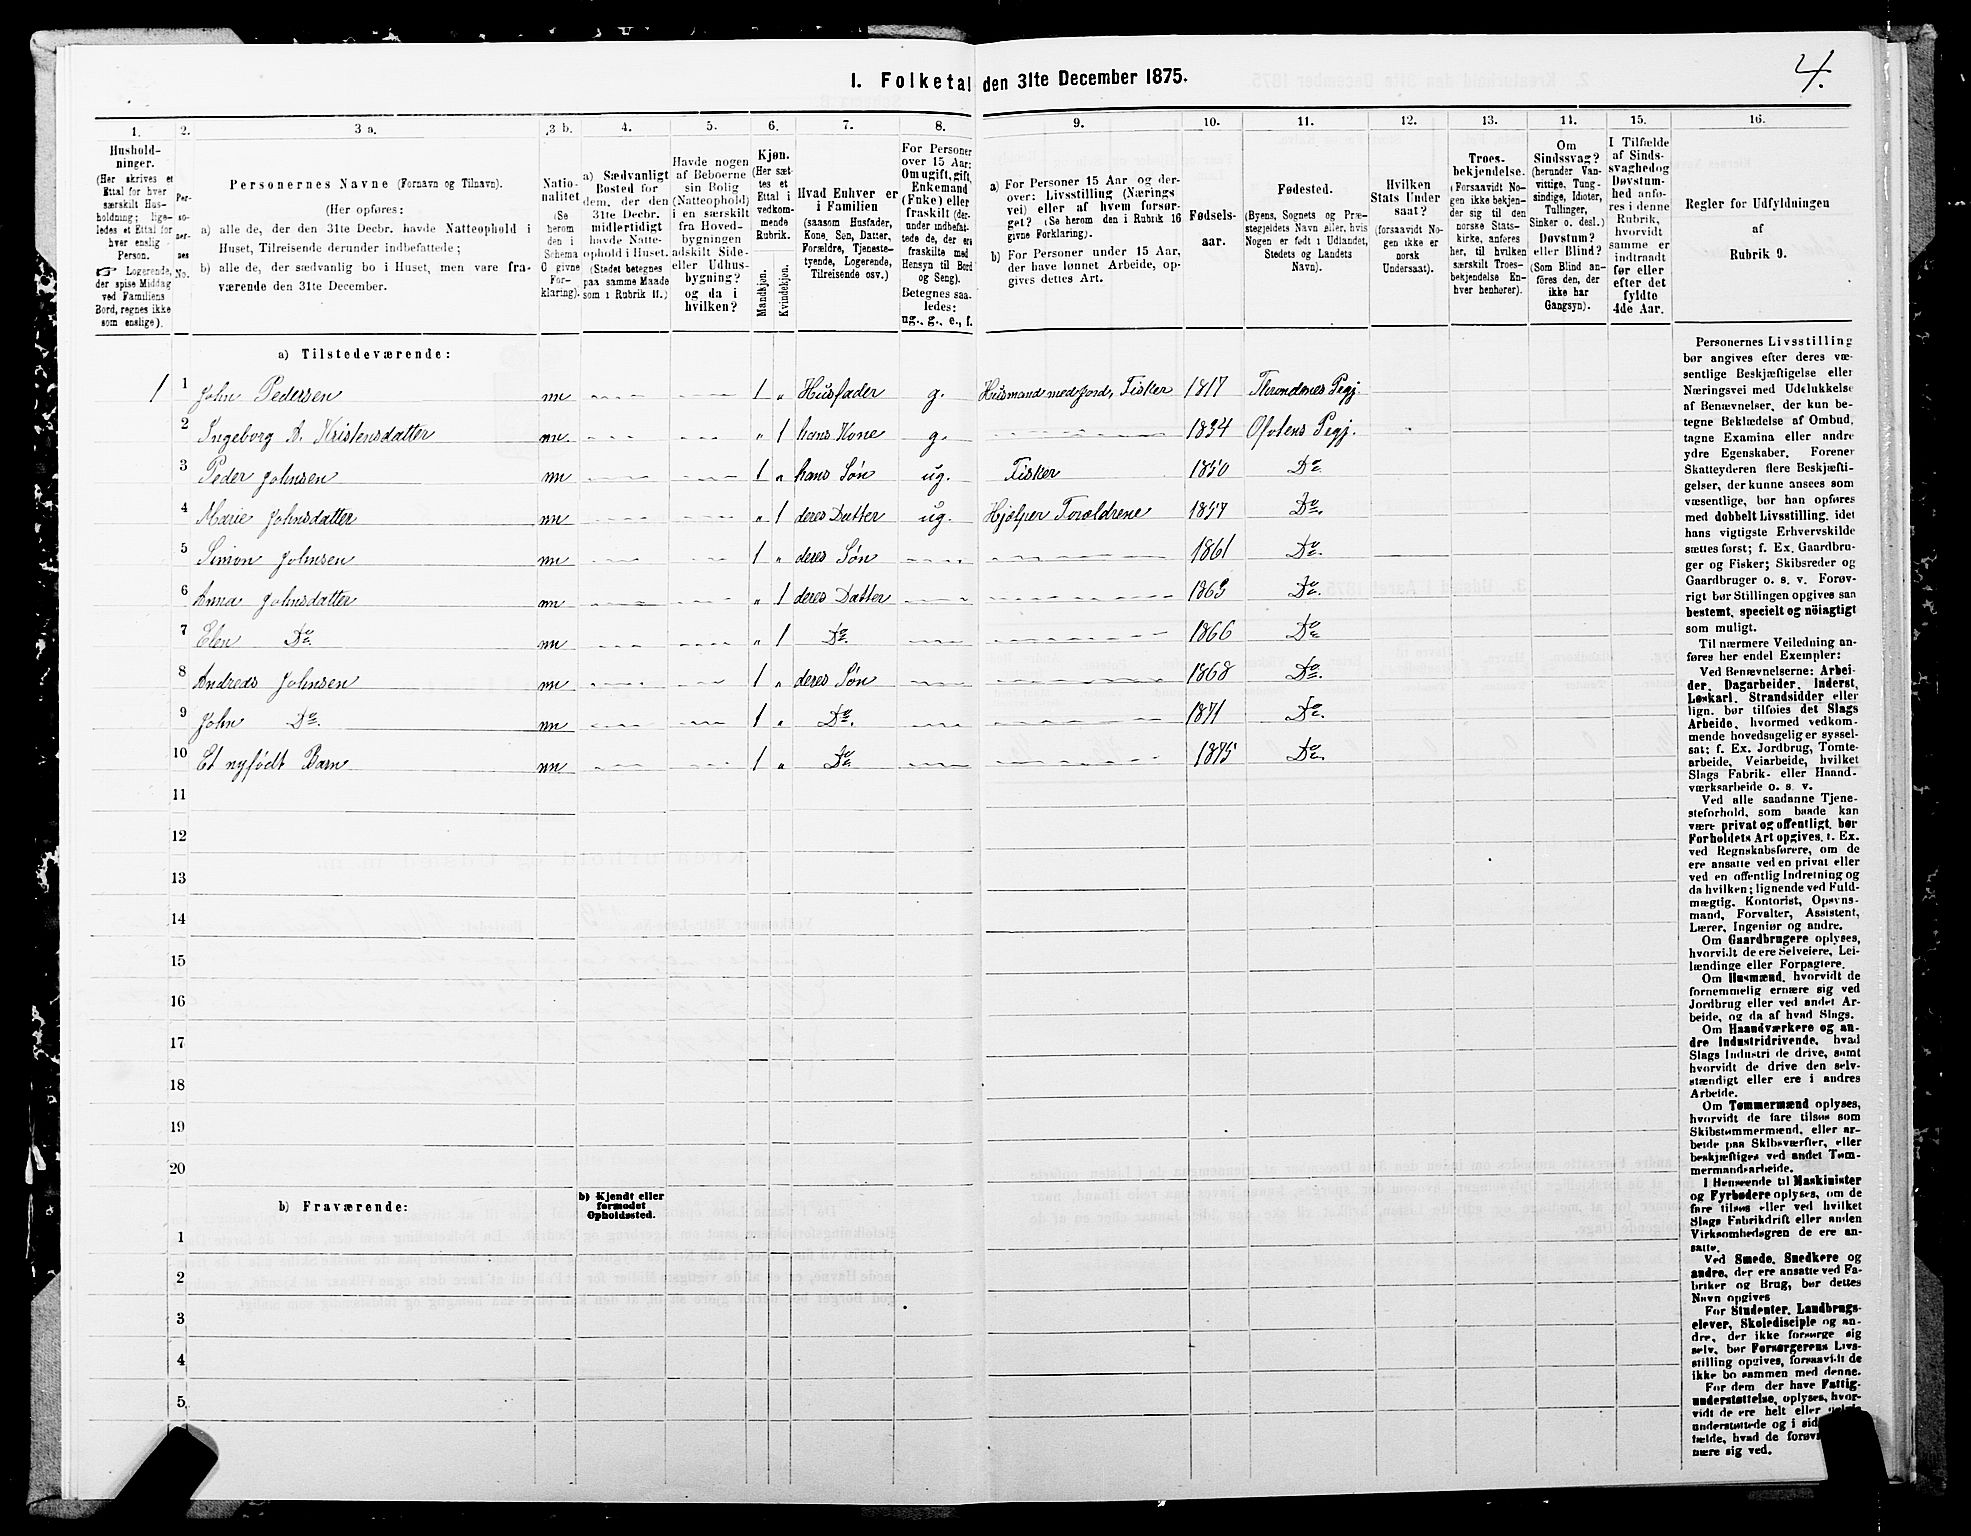 4.
I. Folketal den 31te December 1875.
1. 2. 3 a. 3 b. 4. 5. 6. 7. 8. 9. 10. 11. 12. 13. 14. 15. 16.
Hushold-
ninger.
(Her skrives et
Ettal for hver
særskilt Hus-
holdning; lige-
ledes et Ettal for
hver enslig
Person.
☞ Logerende,
der spise Middag
ved Familiens
Bord, regnes ikke
som enslige).
Per-
so-
ner-
nes
No.
Personernes Navne (Fornavn og Tilnavn).
(Her opføres:
a) alle de, der den 31te Decbr. havde Natteophold i
Huset, Tilreisende derunder indbefattede;
b) alle de, der sædvanlig bo i Huset, men vare fra-
værende den 31te December.
Natio-
nalitet
(Se
herom
den i
Schema
C givne
For-
klaring).
a) Sædvanligt
Bosted for
dem, der den
31te Decbr.
midlertidigt
havde Natte-
ophold i Huset.
(Stedet betegnes
paa samme Maade
som i Rubrik 11.)
Havde nogen
af Beboerne
sin Bolig
(Natteophold)
i en særskilt
fra Hoved-
bygningen
adskilt Side-
eller Udhus-
bygning?
og da i
hvilken?
Kjøn.
(Her sæt-
tes et
Ettal i
vedkom-
mende
Rubrik.
Mandkjøn.
Kvindekjøn.
Hvad Enhver er
i Familien
(saasom Husfader,
Kone, Søn, Datter,
Forældre, Tjeneste-
tyende, Logerende,
Tilreisende osv.)
For Personer
over 15 Aar:
Om ugift, gift,
Enkemand
(Enke) eller
fraskilt (der-
under indbefat-
tede de, der ere
fraskilte med
Hensyn til Bord
og Seng).
Betegnes saa-
ledes:
ug., g., e., f.
a) For Personer 15 Aar og der-
over: Livsstilling (Nærings-
vei) eller af hvem forsør-
get? (Se herom den i Rubrik 16
givne Forklaring).
b) For Personer under 15 Aar,
der have lønnet Arbeide, op-
gives dettes Art.
Fødsels-
aar.
Fødested.
(Byens, Sognets og Præ-
stegjeldets Navn eller, hvis
Nogen er født i Udlandet,
Stedets og Landets
Navn).
Hvilken
Stats Under
saat?
(forsaavidt No-
gen ikke er
norsk
Undersaat).
Troes-
bekjendelse.
(Forsaavidt No-
gen ikke bekjen-
der sig til den
norske Stats-
kirke, anføres
her, til hvilken
særskilt Troes-
bekjendelse En-
hver henhører).
Om
Sindssvag?
(herunder Van-
vittige, Tung-
sindige, Idioter,
Tullinger,
Sinker o. desl.)
Døvstum?
eller Blind?
(Som Blind an-
føres den, der
ikke har
Gangsyn).
I Tilfælde
af Sinds-
svaghed og
Døvstum-
hed anfø-
res i denne
Rubrik,
hvorvidt
samme er
indtraadt
før eller
efter det
fyldte
4de Aar.
Regler for Udfyldningen
af
Rubrik 9.
a) Tilstedeværende:
1 1 John Pedersen nn 1 „ Husfader g. Husmand med Jord, Fisker 1817 Throndenes Pegj.
2 Ingeborg A. Kristensdatter nn. „ 1 hans Kone g. 1834 Ofotens Pegj.
3 Peder Johnsen nn 1 „ hans Søn ug. Fisker 1850 Do
4 Marie Johnsdatter nn „ 1 deres Datter ug. Hjælper Forældrene 1857 Do.
5 Simon Johnsen nn 1 „ deres Søn 1861 Do.
6 Anna Johnsdatter nn „ 1 deres Datter 1863 Do.
7 Elen Do. nn „ 1 Do. 1866 Do
8 Andreas Johnsen nn 1 „ deres Søn 1868 Do.
9 John Do. nn 1 „ Do. 1871 Do.
10 Et nyfödt Barn nn 1 „ Do 1875 Do.
11
12
13
14
15
16
17
18
19
20
b) Fraværende:
b) Kjendt eller
formodet
Opholdssted.
1
2
3
4
5
Personernes Livsstilling
bør angives efter deres væ-
sentlige Beskjæftigelse eller
Næringsvei med Udelukkelse
af Benævnelser, der kun be-
tegne Beklædelse af Ombud,
tagne Examina eller andre
ydre Egenskaber. Forener
Skatteyderen flere Beskjæfti-
gelser, der kunne ansees som
væsentlige, bør han opføres
med dobbelt Livsstilling, idet
hans vigtigste Erhvervskilde
sættes først; f. Ex. Gaardbru-
ger og Fisker; Skibsreder og
Gaardbruger o. s. v. Forøv-
rigt bør Stillingen opgives saa
bestemt, specielt og nöiagtigt
som muligt.
Til nærmere Veiledning an-
føres her endel Exempler:
Ved Benævnelserne: Arbei-
der, Dagarbeider, Inderst,
Løskarl, Strandsidder eller
lign. bør tilføies det Slags
Arbeide, hvormed vedkom-
mende hovedsagelig er syssel-
sat; f. Ex. Jordbrug, Tomte-
arbeide, Veiarbeide, hvilket
Slags Fabrik- eller Haand-
værksarbeide o. s. v.
Ved alle saadanne Tjene-
steforhold, som baade kan
være privat og offentligt, bør
Forholdets Art opgives, t. Ex.
ved Regnskabsførere, om de
ere ansatte ved en privat eller
ved en offentlig Indretning og
da hvilken; lignende ved Fuld-
mægtig, Kontorist, Opsyns-
mand, Forvalter, Assistent,
Lærer, Ingeniør og andre.
Om Gaardbrugere oplyses,
hvorvidt de ere Selveiere, Lei-
lændinge eller Forpagtere.
Om Husmænd, hvorvidt de
fornemmelig ernære sig ved
Jordbrug eller ved andet Ar-
beide, og da af hvad Slags.
Om Haandværkere og an-
dre Industridrivende, hvad
Slags Industri de drive, samt
hvorvidt de drive den selv-
stændigt eller ere i andres
Arbeide.
Om Tømmermænd oplyses,
hvorvidt de fare tilsøs som
Skibstømmermænd, eller ar-
beide paa Skibsværfter, eller
beskjæftiges ved andet Tøm-
mermandsarbeide.
I Henseende til Maskinister
og Fyrbødere oplyses, om de
fare tilsøs eller ved hvilket
Slags Fabrikdrift eller anden
Virksomhedsgren de ere an-
satte.
Ved Smede, Snedkere og
andre, der ere ansatte ved Fa-
briker og Brug, bør dettes
Navn opgives
For Studenter, Landbrugs-
elever, Skoledisciple og an-
dre, der ikke forsørge sig
selv, bør Forsørgerens Livs-
stilling opgives, forsaavidt de
ikke bo sammen med denne.
For dem der have Fattig-
understøttelse, oplyses, hvor-
vidt de ere helt eller
understøttede og i
fælde, hvad de
nære sig ved.